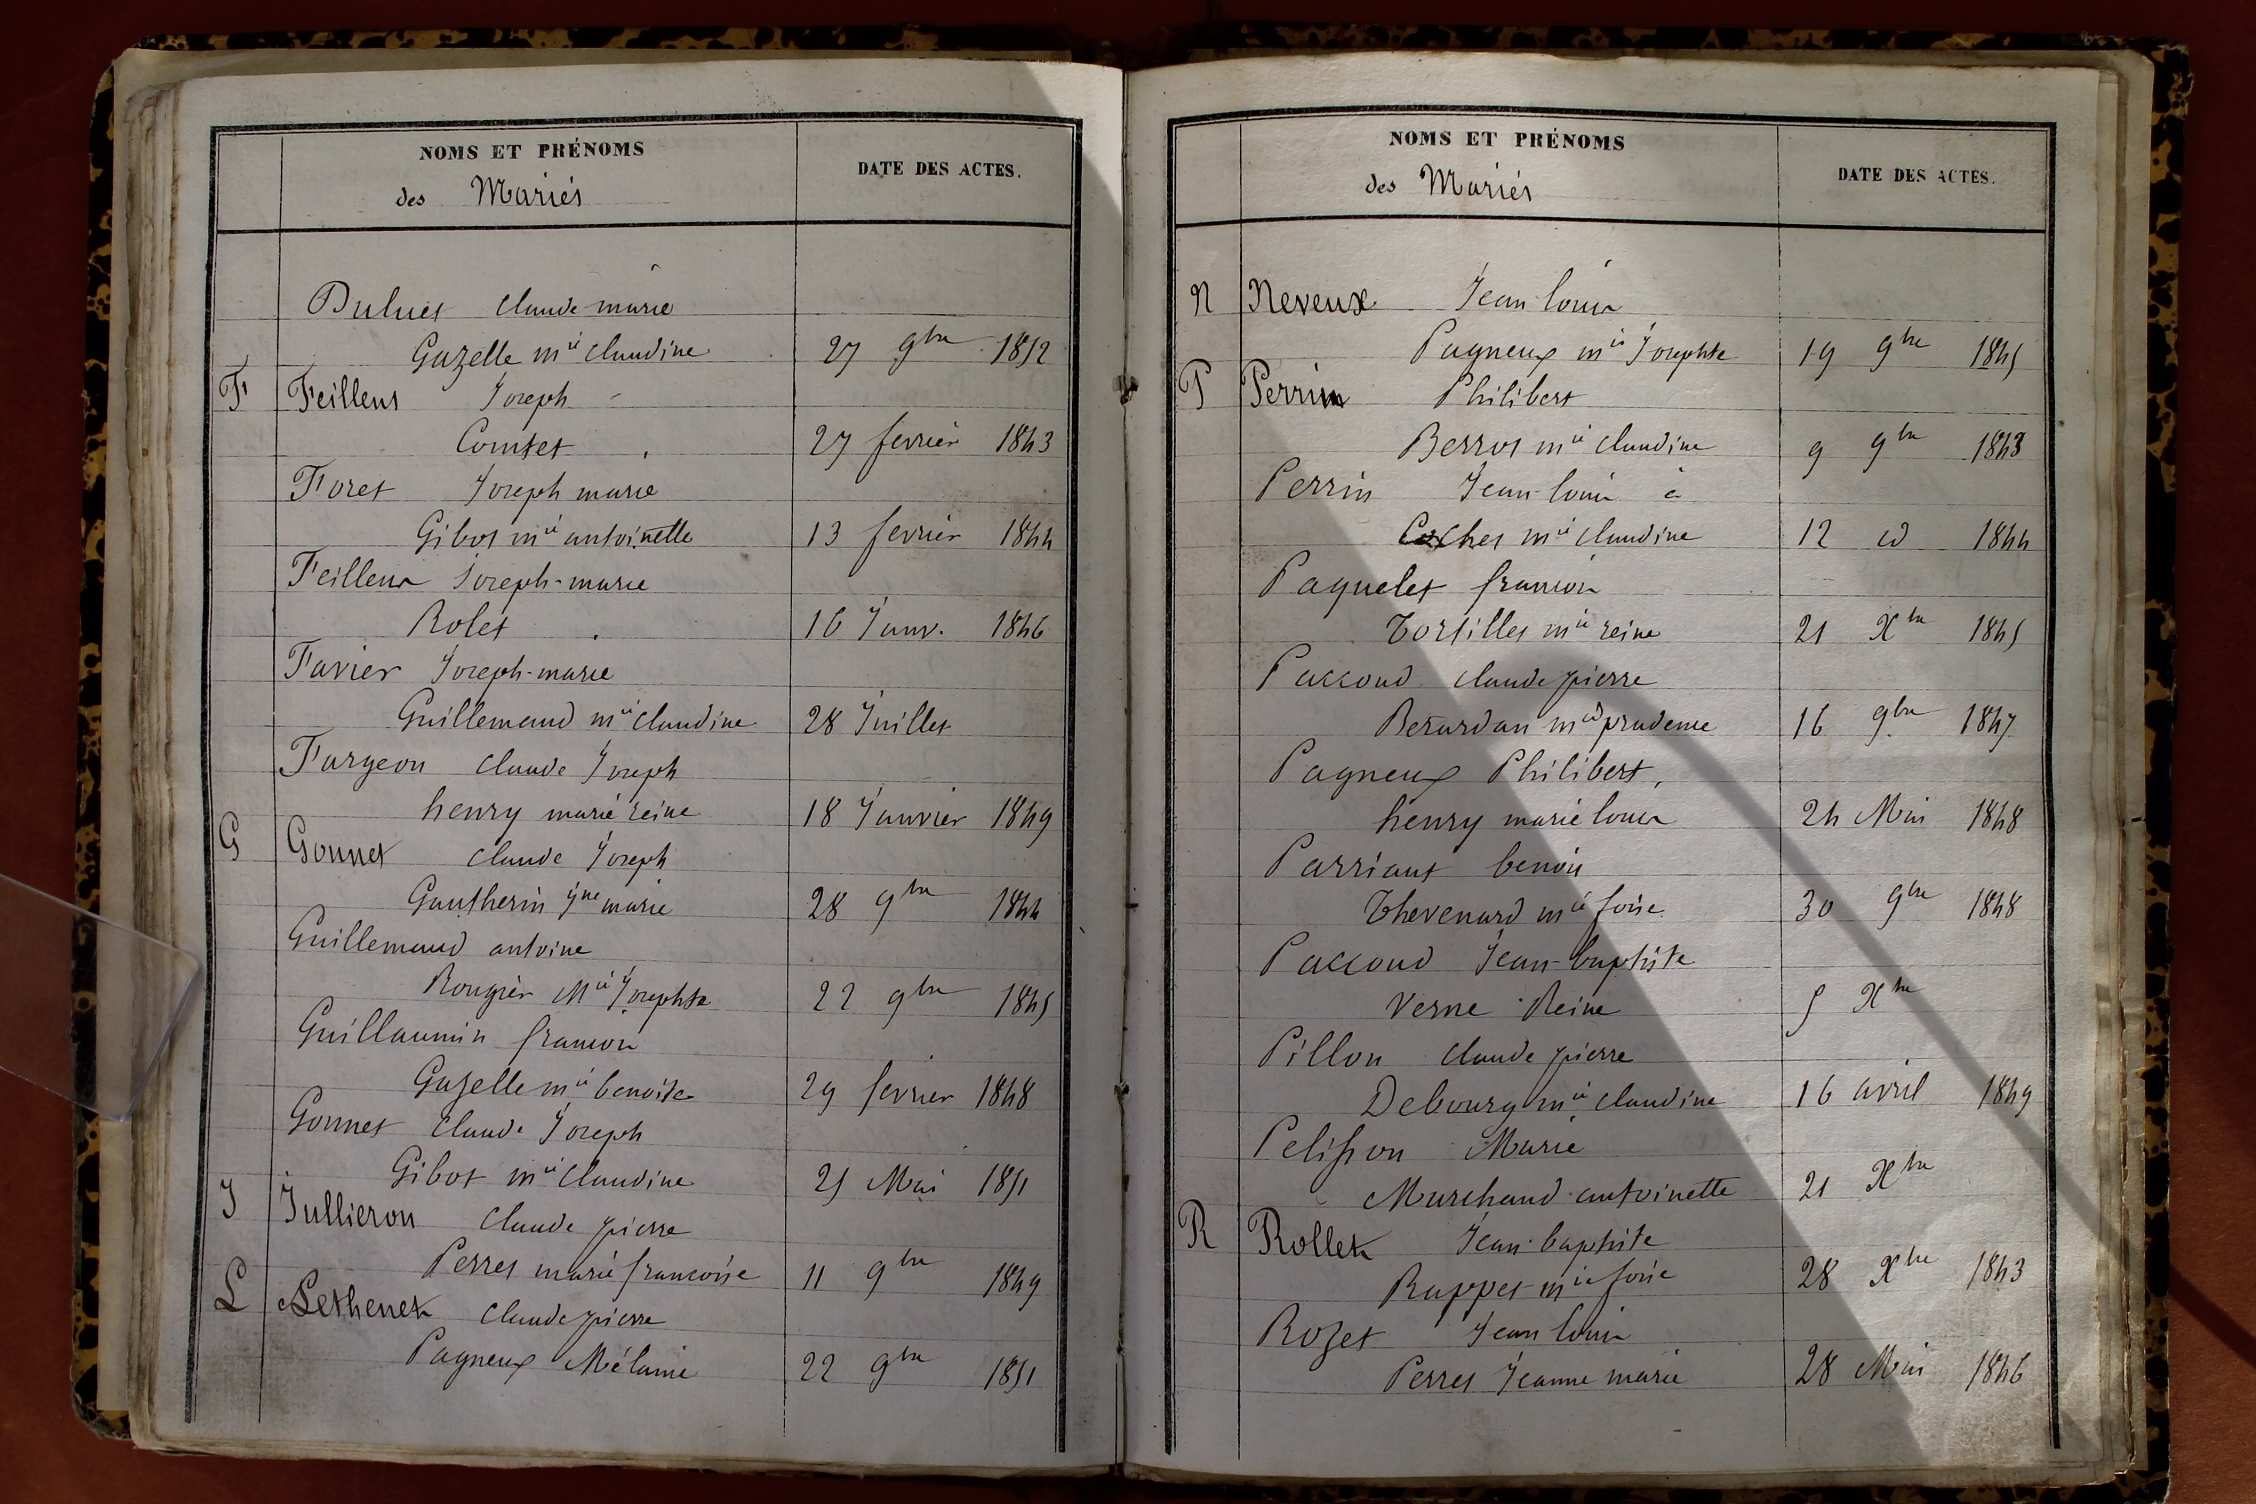 NOMS ET PRÉNOMS
des Mariés
DATE DES ACTES.
Claude marie
Gazelle mie Claudine 27 9bre 1852
F Feillens Joseph
Comtet 27 fevrier 1843
Foret Joseph marie
Gibot mie antoinette 13 fevrier 1844
Feillens Joseph-marie
Rolet 16 Janv. 1846
Favier Joseph-marie
Guillemaud mie Claudine 28 Juillet
Fargeon Claude Joseph
henry marie reine 18 Janvier 1849
G Gonnet Claude Joseph
Gautherin jne marie 28 9bre 1844
Guillemaud antoine
Rougier Mie Josephte 22 9bre 1845
Guillaumin francois
Gazelle mie benoite 29 fevrier 1848
Gonnet Claude Joseph
Gibot mie Claudine 25 Mai 1851
J Jullieron Claude pierre
Perret marie francoise 11 9bre 1849
L Lethenet Claude pierre
Pagneux Mélanie 22 9bre 1851
NOMS ET PRÉNOMS
des Mariés
DATE DES ACTES.
N Neveux Jean louis
Pagneux mie Josephte 19 9bre 1845
P Perrin Philibert
Berrot mie Claudine 9 9bre 1843
Perrin Jean-louis
mie Claudine 12 id 1844
Paquelet francois
Tortillet mie reine 21 Xbre 1845
Paccoud Claude pierre
Berardan mie prudence 16 9bre 1847
Pagneux Philibert,
henry marie louise 24 Mai 1848
Parriaut benoit
Thevenard mie foise 30 9bre 1848
Paccoud Jean-baptiste
Verne Reine 5 Xbre
Pillon Claude pierre
Debourg mie Claudine 16 avril 1849
Pelisson Marie
Marchand antoinette 21 Xbre
R Rollet Jean-baptiste
Rappet mie foise 28 Xbre 1843
Rozet Jean louis
Perret Jeanne marie 28 Mai 1846